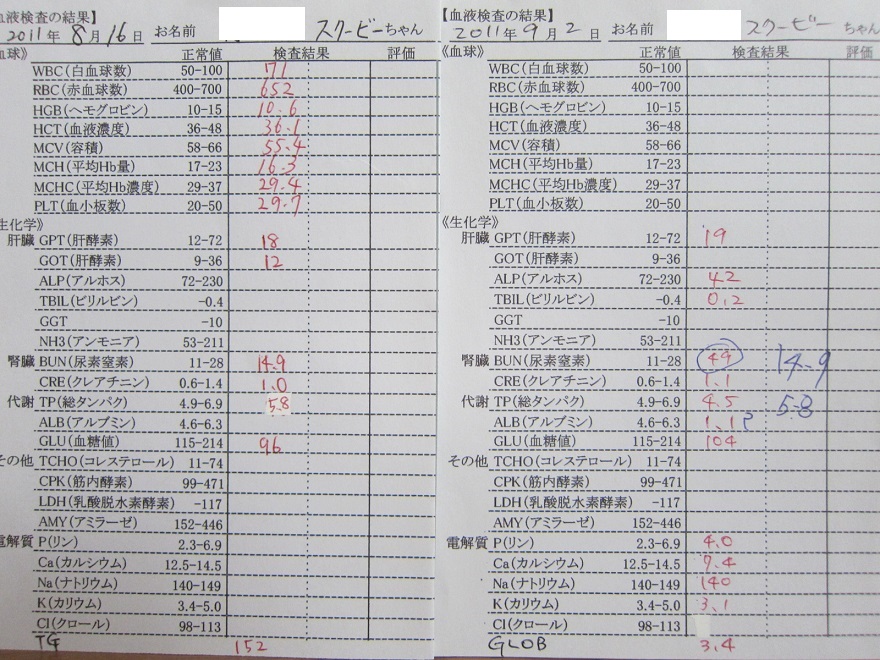 血液検査の結果】
2011年 8月16日 お名前 スクービーちゃん
血球》 正常値 検査結果 評価
WBC(白血球数) 50-100 171
RBC(赤血球数) 400-700 652
HGB(ヘモグロビン) 10-15 10.6
HCT(血液濃度) 36-48 36.1
MCV(容積) 58-66 55.4
MCH(平均Hb量) 17-23 16.3
MCHC(平均Hb濃度) 29-37 29.4
PLT(血小板数) 20-50 29.7
生化学》
肝臓 GPT(肝酵素) 12-72 18
GOT(肝酵素) 9-36 12
ALP(アルホス) 72-230
TBIL(ビリルビン) -0.4
GGT -10
NH3(アンモニア) 53-211
腎臓 BUN(尿素窒素) 11-28 14.9
CRE(クレアチニン) 0.6-1.4 1.0
代謝 TP(総タンパク) 4.9-6.9 5.8
ALB(アルブミン) 4.6-6.3
GLU(血糖値) 115-214 96
その他 TCHO(コレステロール) 11-74
CPK(筋内酵素) 99-471
LDH(乳酸脱水素酵素) -117
AMY(アミラーゼ) 152-446
電解質 P(リン) 2.3-6.9
Ca(カルシウム) 12.5-14.5
Na(ナトリウム) 140-149
K(カリウム) 3.4-5.0
Cl(クロール) 98-113
TG 152
【血液検査の結果】
2011年 9月 2日 お名前 スクービー ちゃん
《血球》 正常値 検査結果 評価
WBC(白血球数) 50-100
RBC(赤血球数) 400-700
HGB(ヘモグロビン) 10-15
HCT(血液濃度) 36-48
MCV(容積) 58-66
MCH(平均Hb量) 17-23
MCHC(平均Hb濃度) 29-37
PLT(血小板数) 20-50
《生化学》
肝臓 GPT(肝酵素) 12-72 19
GOT(肝酵素) 9-36
ALP(アルホス) 72-230 42
TBIL(ビリルビン) -0.4 0.2
GGT -10
NH3(アンモニア) 53-211
腎臓 BUN(尿素窒素) 11-28 49 14.9
CRE(クレアチニン) 0.6-1.4 1.1
代謝 TP(総タンパク) 4.9-6.9 4.5 5.8
ALB(アルブミン) 4.6-6.3 1.1
GLU(血糖値) 115-214 104
その他 TCHO(コレステロール) 11-74
CPK(筋内酵素) 99-471
LDH(乳酸脱水素酵素) -117
AMY(アミラーゼ) 152-446
電解質 P(リン) 2.3-6.9 4.0
Ca(カルシウム) 12.5-14.5 7.4
Na(ナトリウム) 140-149 140
K(カリウム) 3.4-5.0 3.1
Cl(クロール) 98-113
GLOB 3.4